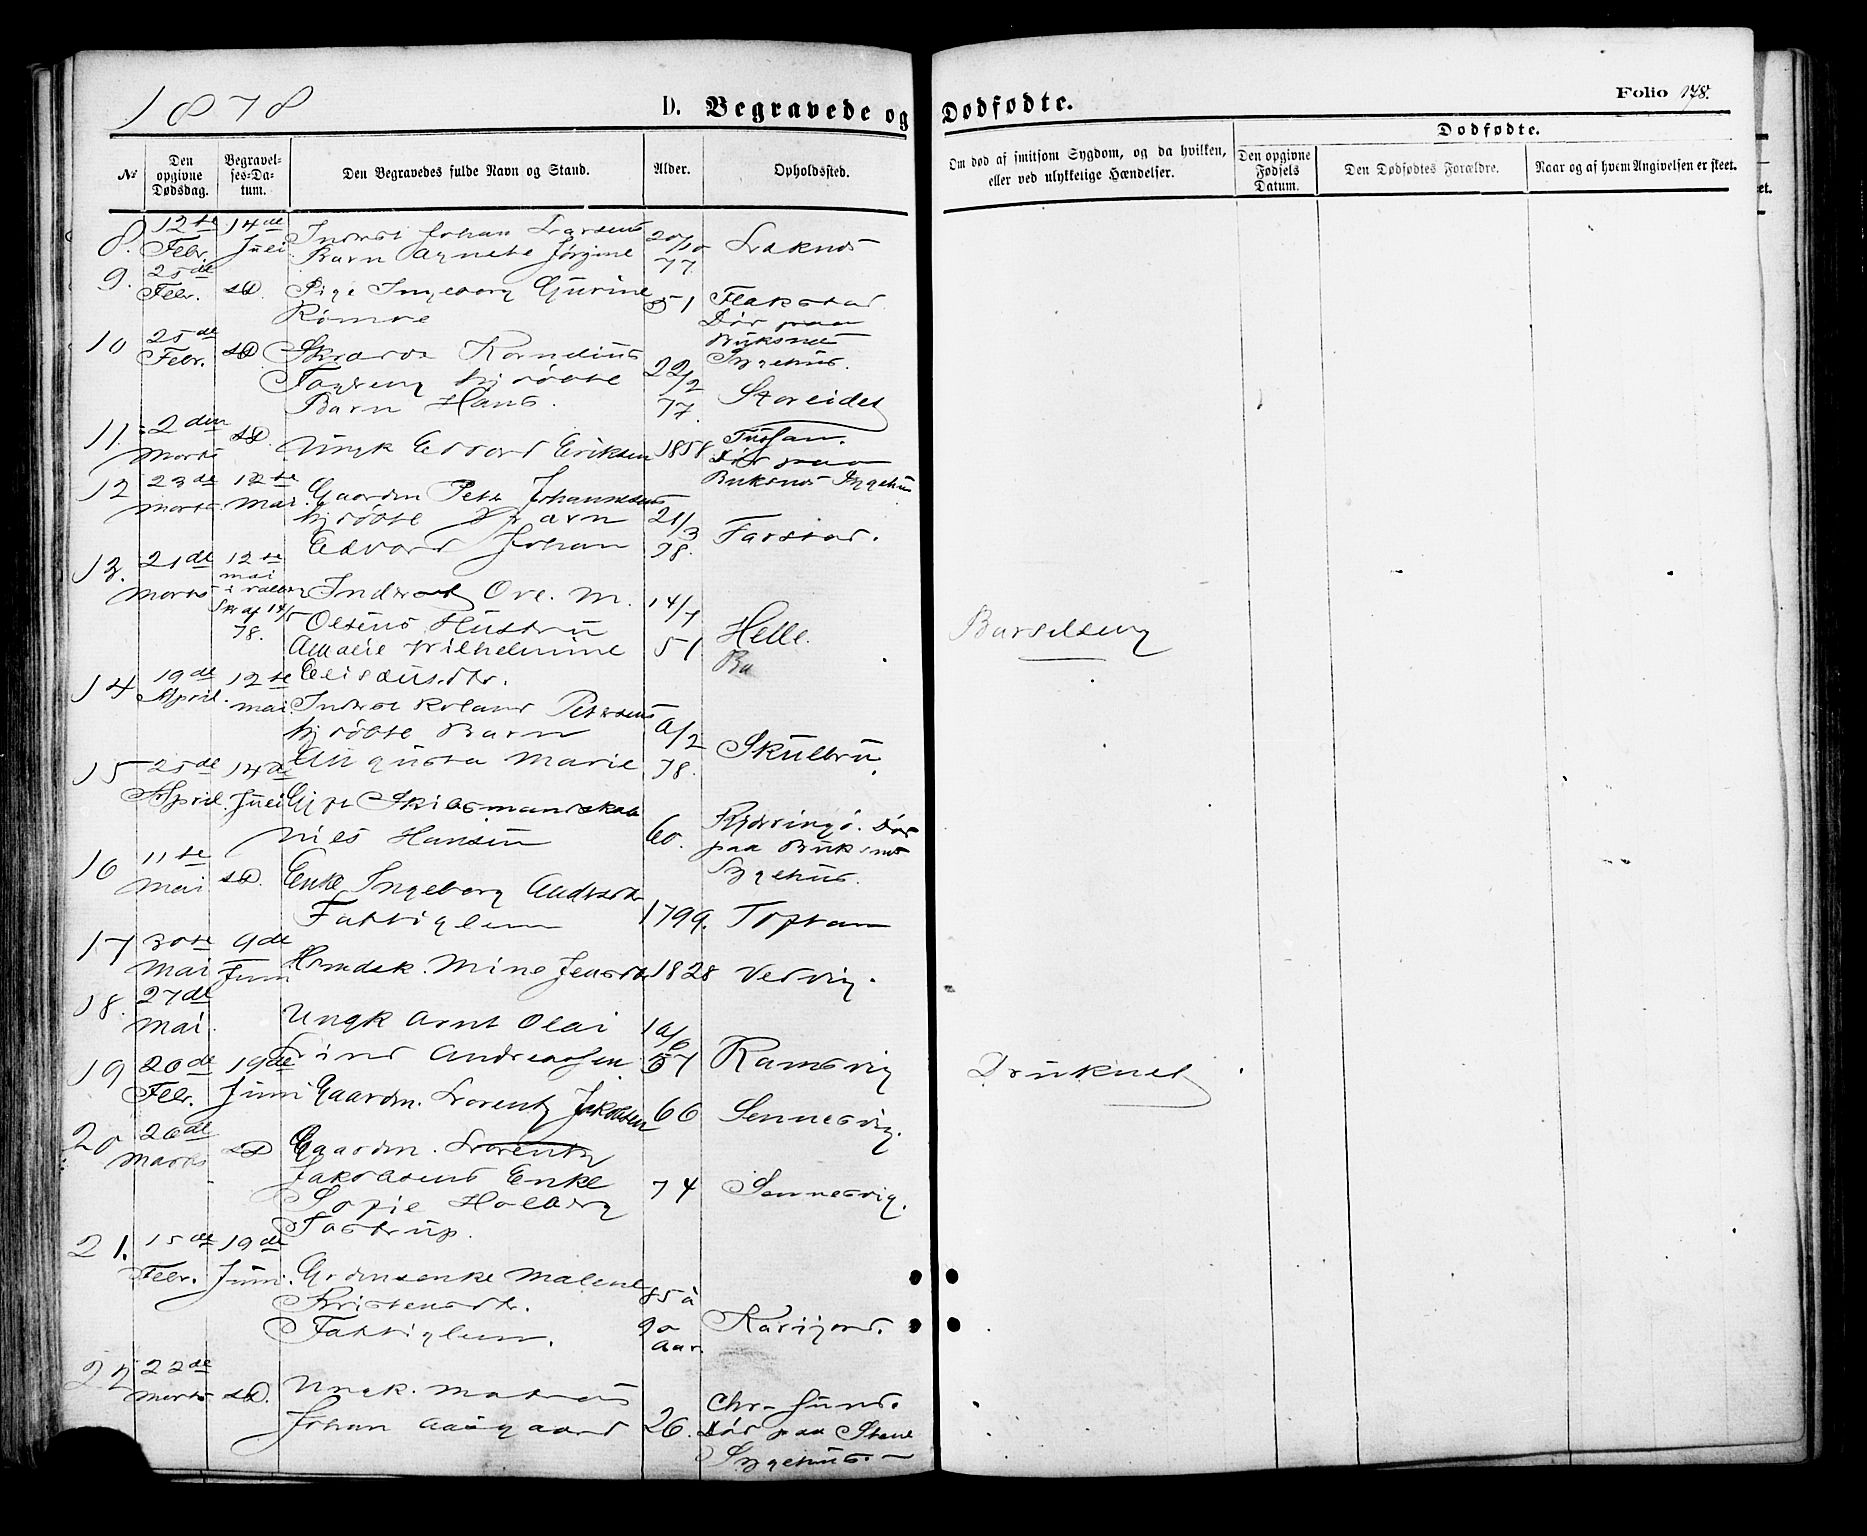 1878
D. Begravede og Dødfødte.
Folio 178.
№
Den opgivne Dødsdag.
Begravelses-Datum.
Den Begravedes fulde Navn og Stand.
Alder.
Opholdssted.
Om død af smitsom Sygdom, og da hvilken, eller ved ulykkelige Hændelser.
Dødfødte.
Den opgivne Fødsels Datum.
Den Dødfødtes Forældre.
Naar og af hvem Angivelsen er skeet.
8. 12te Febr. 14de Juli Inderst Johan Larsens
Barn Agnete Jørgine 20/10 77
9. 25de Febr. sD. Pige Ingeborg Gurine
51 Flakstad
Død paa
Buksnes
Sygehus.
10 25de Febr. sD. Kornelius
hj døbte
Barn Hans. 22/2 77. Storeidet
11. 2den Marts sD. Ungk Edvard Eriksen 1858
Død paa
Buksnes Sygehus
12 23de Marts 12te Mai. Gaardm Peter Johannesens
hj døbte Barn
Edvard Johan 21/3 78. Farstad.
13. 21de Marts 12te mai
Skr af 14/5 78.
Inderst Ove. M.
Olsens Hustru
Amalie Wilhelmine
Elisæusdtr. 14/7 51 Helle.
Ba
Barselseng
14 19de April. 12te mai. Inderst Roland Petersens
hj døbte Barn
Augusta Marie 9/2 78. Skulbru.
15 25de April. 14de Juli Gift Skibsmandskab
Nils Hansen 60. Kjerringø. Død
paa Buksnes
Sygehus.
16 11te Mai sD. Enke Ingeborg Andersdtr
Fattiglem 1799. Toptan
17 30te Mai 9de Juni Mine Jensdtr 1828 Vedvig.
18. 27de Mai. Ungk Arnt Olai
Andreassen 19/6 57 Ramsvig
Druknet
19 20de Febr. 19de Juni Gaardm. Lorentz Jakobsen 66 Sennesvig.
20 26de Marts sD Gaardm. Lorentz
Jakobsens Enke
Sofie Holberg
Tastrup. 74 Sennesvig.
21. 15de Febr. 19de Juni. Grdmsenke Malene
Kristensdtr.
Fattiglem. 85 à 90 Aar. Karijord.
22 22de Marts sD. Ungk. Mathæus
Johan Aasgaard 26. Chr-sund.
Død paa
Sygehus.